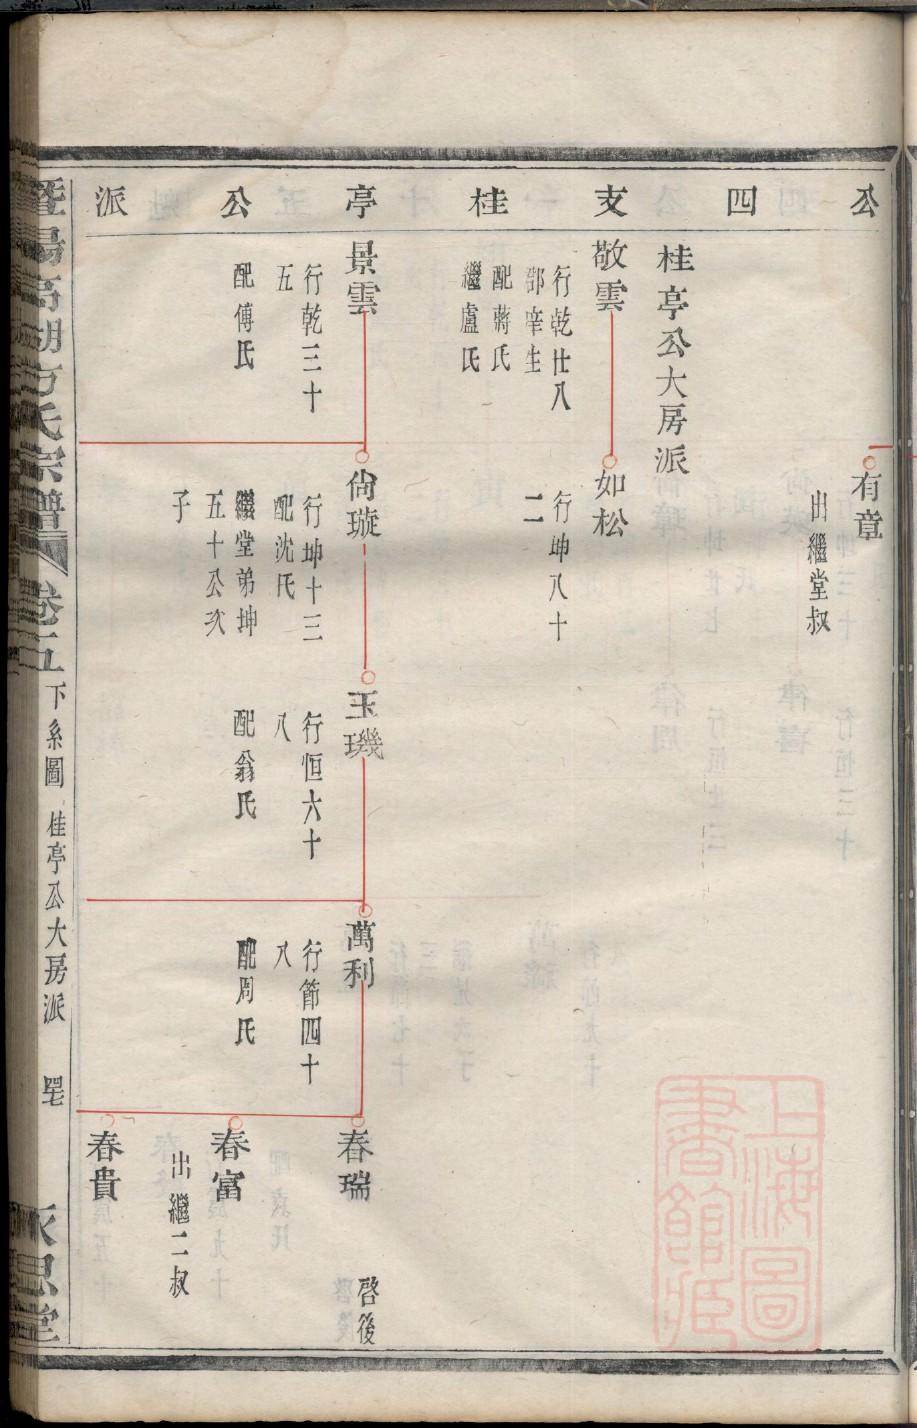 公四支桂亭公派
有章
出繼堂叔
桂亭公大房派
敬雲
行乾廿八
部庠生
配蔣氏
繼盧氏
如松
行坤八十
二
景雲
行乾三十
五
配傅氏
尙璇
行坤十三
配沈氏
繼堂弟坤
五十公次
子
玉璣
行恒六十
八
配翁氏
萬利
行節四十
八
配周氏
春瑞
啓後
春富
出繼二叔
春貴
暨陽高湖方氏宗譜
卷五
下系圖
桂亭公大房派
永思堂
上海圖書館藏